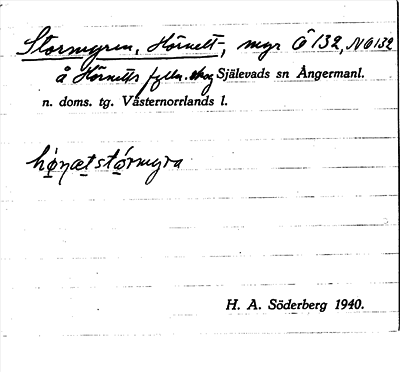 Stormyren, Hörnett-, myr Ö 132, NÖ 132
å Hörnetts fylln. skog Själevads sn Ångermanl.
n. doms. tg. Västernorrlands l.
hǿŋætstórmyra
H. A. Söderberg 1940.